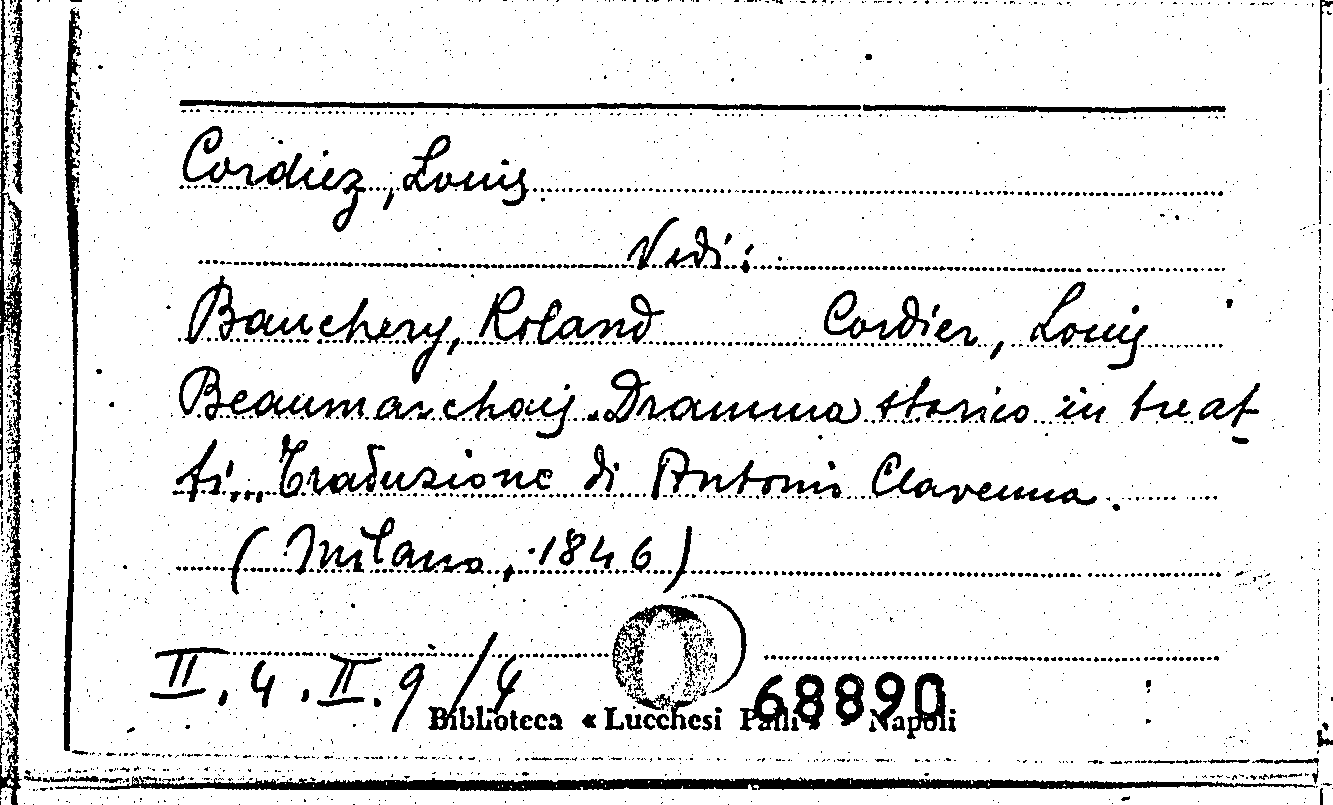 Cordiez, Louis
Vedi:
Bauchery, Roland Cordier, Louis
Beaumarchais. Dramma storico in tre at-
ti... Traduzione di Antonio Clavenna.
(Milano, 1846)
II. 4. II. 9/4
68890
Biblioteca « Lucchesi Palli » - Napoli